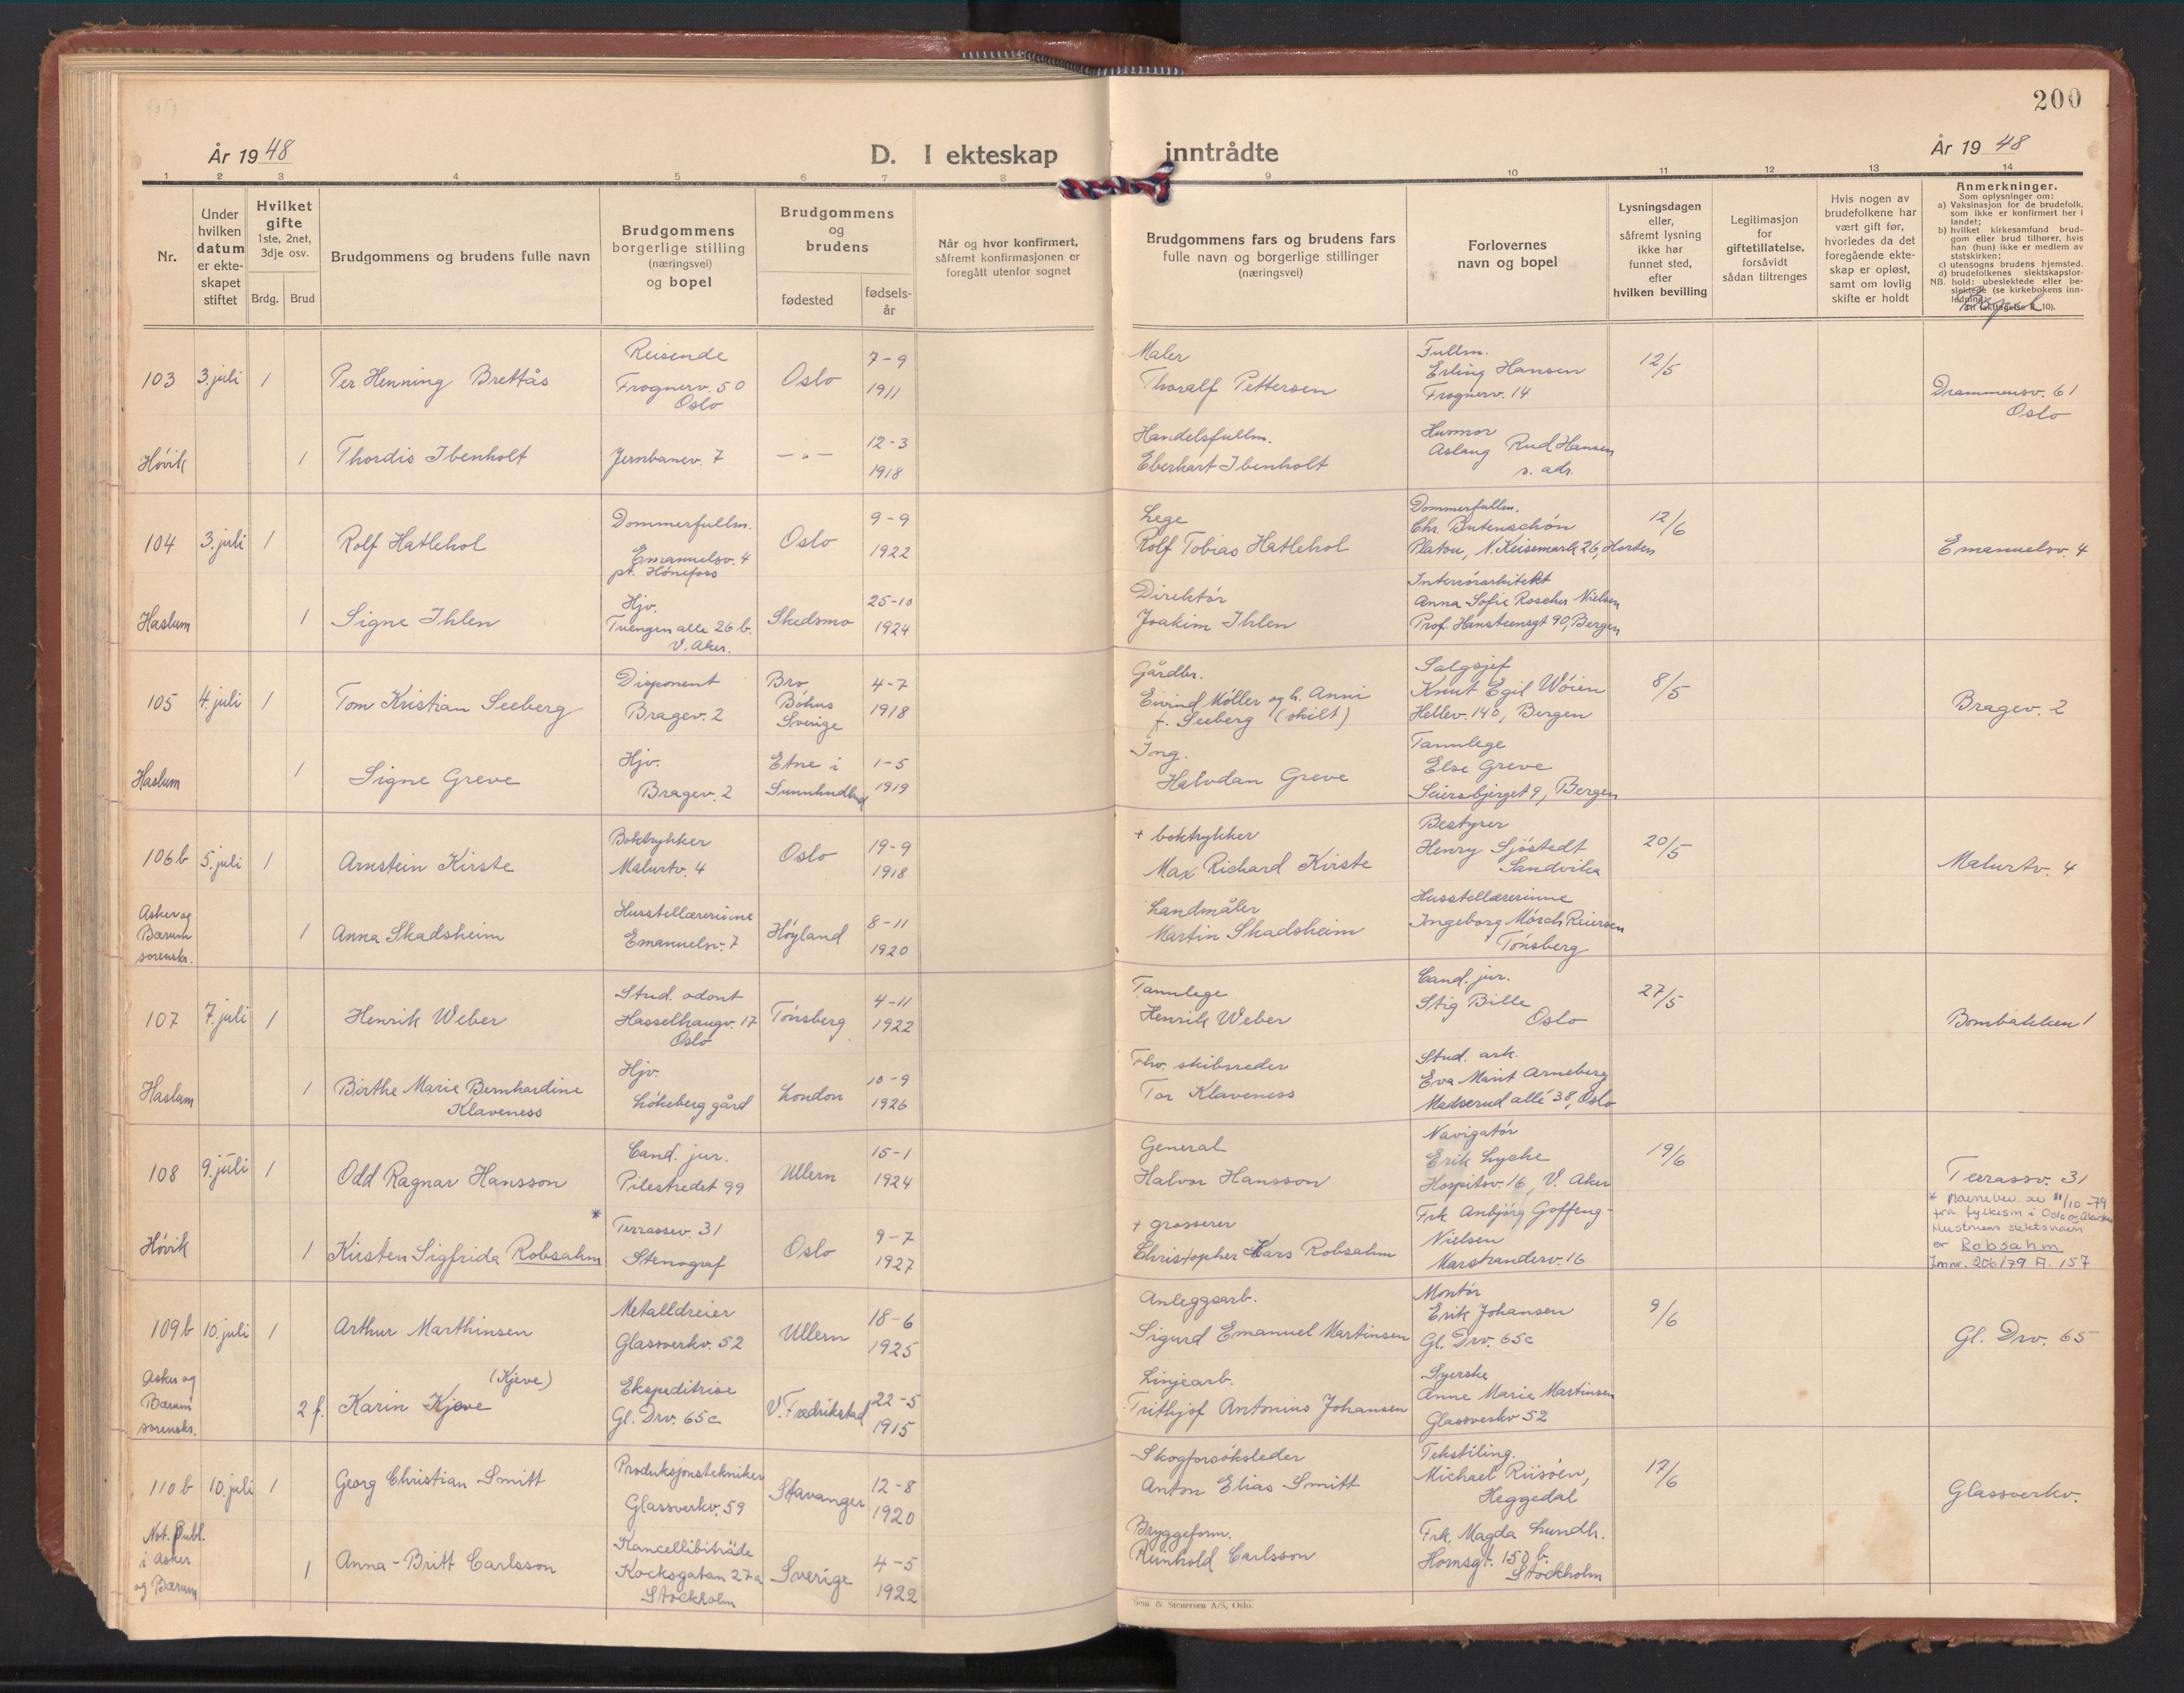 200
År 1948
D. I ekteskap inntrådte
År 1948
1 2 3 4 5 6 7 8 9 10 11 12 13 14
Nr.
Under hvilken datum er ekteskapet stiftet
Hvilket gifte 1ste, 2net, 3dje osv.
Brdg. Brud
Brudgommens og brudens fulle navn
Brudgommens borgerlige stilling (næringsvei) og bopel
Brudgommens og brudens
fødested
fødselsår
Når og hvor konfirmert, såfremt konfirmasjonen er foregått utenfor sognet
Brudgommens fars og brudens fars fulle navn og borgerlige stillinger (næringsvei)
Forlovernes navn og bopel
Lysningsdagen eller, såfremt lysning ikke har funnet sted, efter hvilken bevilling
Legitimasjon for giftetillatelse, forsåvidt sådan tiltrenges
Hvis nogen av brudefolkene har vært gift før, hvorledes da det foregående ekteskap er opløst, samt om lovlig skifte er holdt
Anmerkninger.
Som oplysninger om:
a) Vaksinasjon for de brudefolk, som ikke er konfirmert her i landet;
b) hvilket kirkesamfund brudgom eller brud tilhører, hvis han (hun) ikke er medlem av statskirken;
c) utensogns brudens hjemsted.
d) brudefolkenes slektskapsforhold: ubeslektede eller beslektede (se kirkebokens innledning,
NB.
Bopel
103 3. juli 1 Per Henning Brettås
Reisende
Frognerv. 50
Oslo
Oslo 7-9 1911
Maler
Thoralf Pettersen
Fullm.
Erling Hansen
Frognerv. 14
12/5
Drammensv. 61
Oslo
Høvik 1 Thordis Ibenholt
Jernbanev. 7
— „ — 12-3 1918
Handelsfullm.
Eberhart Ibenholt
Husmor
Aslaug Rud Hansen
s. adr.
104 3. juli 1 Rolf Hatlehol
Dommerfullm.
Emanuelsv. 4
pt. Hønefoss
Oslo 9-9 1922
Lege
Rolf Tobias Hatlehol
Dommerfullm.
Chr. Butenschön
Platou, N. Keisemark 26, Horten
12/6
Emanuelsv. 4
Haslum 1 Signe Ihlen
Hjv.
Tuengen alle 26 b.
V. Aker.
Skedsmo 25-10 1924
Direktør
Joakim Ihlen
Interiørarkitekt
Anna Sofie Roscher Nielsen
Prof. Hansteensgt 90, Bergen
105 4. juli 1 Tom Kristian Seeberg
Disponent
Bragev. 2
Bro
Bohus
Sverige
4-7 1918
Gårdbr.
Eivind Møller og h. Anni
f. Seeberg (skilt)
Salgsjef
Knut Egil Wøien
Hellev. 140, Bergen
8/5
Bragev. 2
Haslum 1 Signe Greve
Hjv.
Bragev. 2
Etne i
Sunnhordland
1-5 1919
Ing.
Halvdan Greve
Tannlege
Else Greve
Seiersbjerget 9, Bergen
106b 5. juli 1 Arnstein Kirste
Boktrykker
Malurtv. 4
Oslo 19-9 1918
+ boktrykker
Max Richard Kirste
Bestyrer
Henry Sjøstedt
Sandvika
20/5
Malurtv. 4
Asker og
Bærum
sorenskr.
1 Anna Skadsheim
Husstellærerinne
Emanuelsv. 7
Høyland 8-11 1920
Landmåler
Martin Skadsheim
Husstellærerinne
Ingeborg Mørch Reiersen
Tønsberg
107 7. juli 1 Henrik Weber
Stud. odont
Hasselhaugv. 17
Oslo
Tønsberg 4-11 1922
Tannlege
Henrik Weber
Cand. jur.
Stig Bille
Oslo
27/5
Bombakken 1
Haslum 1 Birthe Marie Bernhardine
Klaveness
Hjv.
Løkeberg gård
London 10-9 1926
Fhv. skibsreder
Tor Klaveness
Stud. ark.
Eva Marit Arneberg
Madserud allé 38, Oslo
108 9. juli 1 Odd Ragnar Hansson
Cand. jur.
Pilestredet 99
Ullern 15-1 1924
General
Halvor Hansson
Navigatør
Erik Lycke
Hospitsv. 16, V. Aker
19/6
Terassv. 31
* Navnebev. av 11/10-79
fra fylkesm i Oslo og Akershus
Hustruens slektsnavn
er Robsahm
Jmnr. 206/79 A. 157
Høvik 1 Kirsten Sigfrida Robsahm *
Terrassev. 31
Stenograf
Oslo 9-7 1927
+ grosserer
Christopher Lars Robsahm
Frk. Anbjørg Goffeng-
Nielsen
Marstranderv. 16
109b 10. juli 1 Arthur Marthinsen
Metalldreier
Glassverkv. 52
Ullern 18-6 1925
Anleggsarb.
Sigurd Emanuel Martinsen
Montør
Erik Johansen
Gl. Drv. 65c
9/6
Gl. Drv. 65
Asker og
Bærum
sorenskr.
2 f. Karin Kjeve
(Kjeve)
Ekspeditrise
Gl. Drv. 65c
V. Fredrikstad 22-5 1915
Linjearb.
Frithjof Antonius Johansen
Syerske
Anne Marie Martinsen
Glassverkv 52
110b 10. juli 1 Georg Christian Smitt
Produksjonstekniker
Glassverkv. 59
Stavanger 12-8 1920
Skogforsøksleder
Anton Elias Smitt
Tekstiling.
Michael Riisøen,
Heggedal
17/6
Glassverkv.
Not. Publ.
i Asker
og Bærum
1 Anna-Britt Carlsson
Kancellibiträde
Kocksgatan 27a
Stockholm
Sverige 4-5 1922
Bryggeform.
Reinhold Carlsson
Frk. Magda Lundh.
Hornsgt. 150 b.
Stockholm
Sem & Stenersen A/S, Oslo.